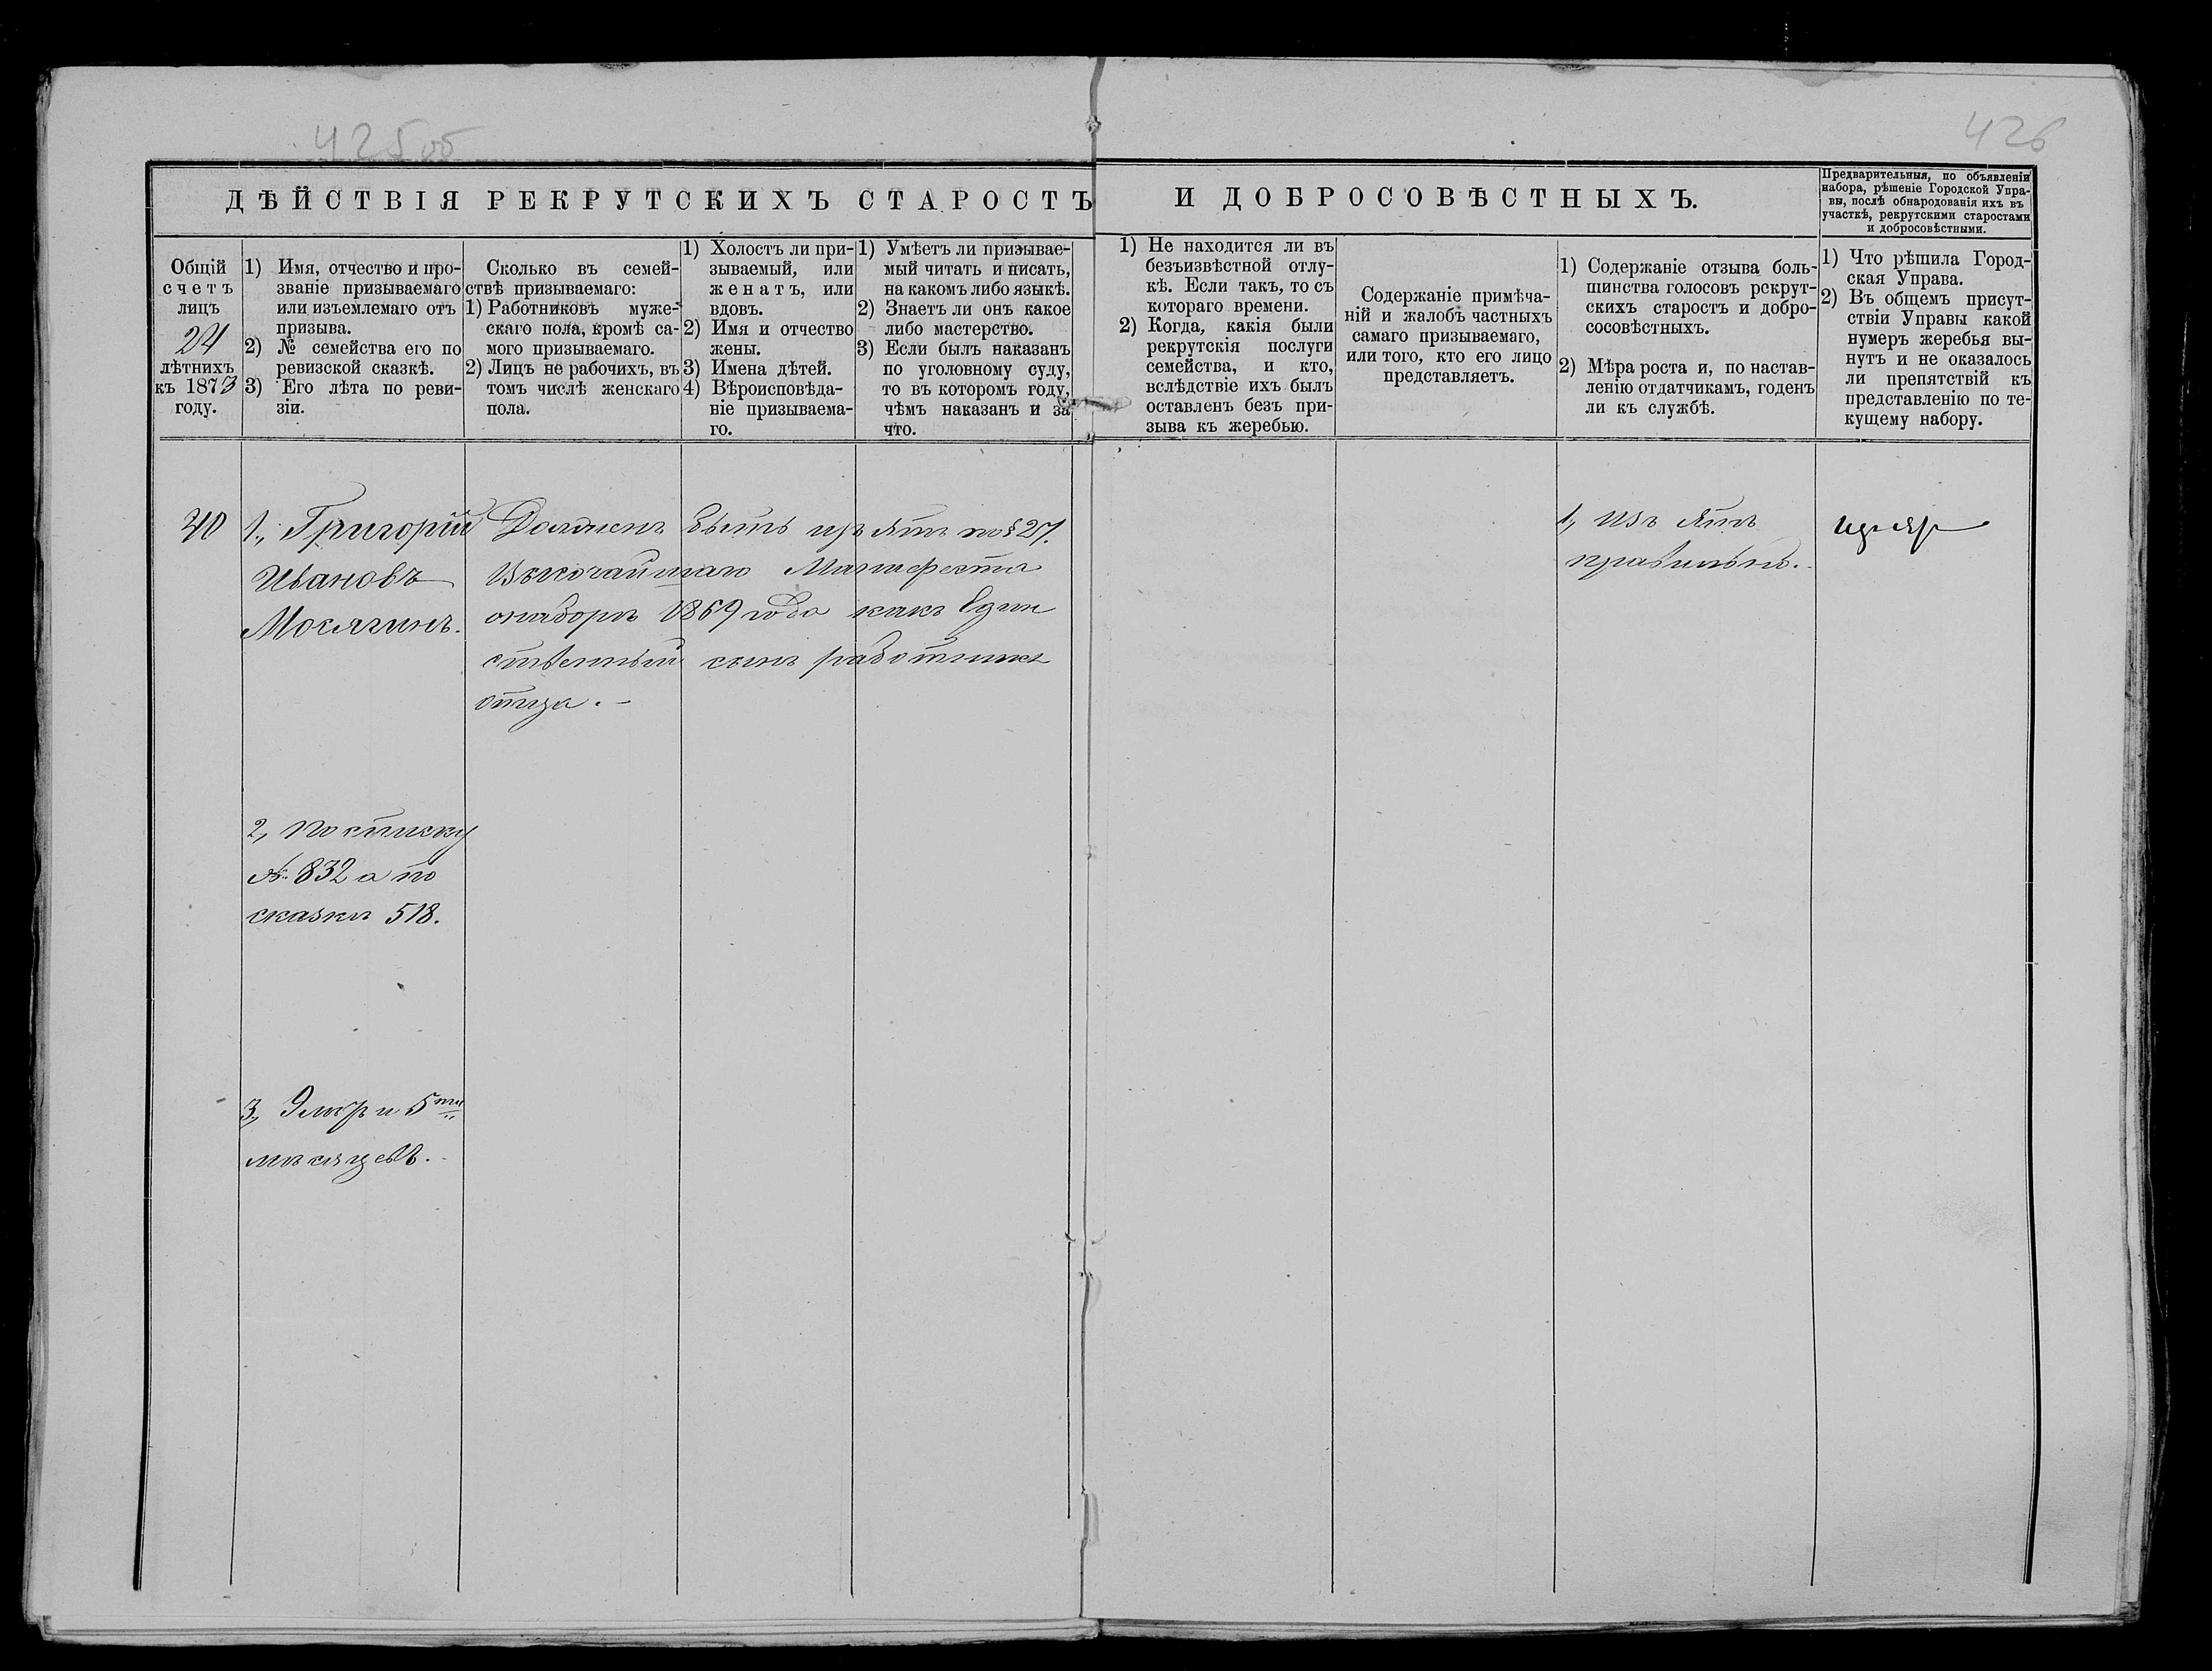 425об
426
ДѢЙСТВІЯ РЕКРУТСКИХЪ СТАРОСТЪ
И ДОБРОСОВѢСТНЫХЪ.
Предварительныя, по объявленіи
набора, рѣшеніе Городской Упра-
вы, послѣ обнародованія ихъ въ
участкѣ, рекрутскими старостами
и добросовѣстными.
Общій
счетъ
лицъ
24
лѣтнихъ
къ 1873
году.
1) Имя, отчество и про-
званіе призываемаго
или изъемлемаго отъ
призыва.
2) № семейства его по
ревизской сказкѣ.
3) Его лѣта по реви-
зіи.
Сколько въ семей-
ствѣ призываемаго:
1) Работниковъ муже-
скаго пола, кромѣ са-
мого призываемаго.
2) Лицъ не рабочихъ, въ
томъ числѣ женскаго
пола.
1) Холостъ ли при-
зываемый, или
женатъ, или
вдовъ.
2) Имя и отчество
жены.
3) Имена дѣтей.
4) Вѣроисповѣда-
ніе призываема-
го.
1) Умѣетъ ли призывае-
мый читать и писать,
на какомъ либо языкѣ.
2) Знаетъ ли онъ какое
либо мастерство.
3) Если былъ наказанъ
по уголовному суду,
то въ которомъ году,
чѣмъ наказанъ и за
что.
1) Не находится ли въ
безъизвѣстной отлу-
кѣ. Если такъ, то съ
котораго времени.
2) Когда, какія были
рекрутскія послуги
семейства, и кто,
вслѣдствіе ихъ былъ
оставленъ безъ при-
зыва къ жеребью.
Содержаніе примѣча-
ній и жалобъ частныхъ
самаго призываемаго,
или того, кто его лицо
представляетъ.
1) Содержаніе отзыва боль-
шинства голосовъ рекрут-
скихъ старостъ и добро-
сосовѣстныхъ.
2) Мѣра роста и, по настав-
ленію отдатчикамъ, годенъ
ли къ службѣ.
1) Что рѣшила Город-
ская Управа.
2) Въ общемъ присут-
ствіи Управы какой
нумеръ жеребья вы-
нутъ и не оказалось
ли препятствій къ
представленію по те-
кущему набору.
40
1., Григорій
Ивановъ
Мосягинъ.
2, По списку
№ 832 а по
сказкѣ 518.
3, 9 лѣтъ и 5ти
мѣсяцевъ.
Долженъ быть изъятъ по § 27.
Высочайшаго Манифеста
о наборѣ 1869 года какъ Един
ственный сынъ работника
отца. –
1, Изъятъ
правильно.
Изъятъ